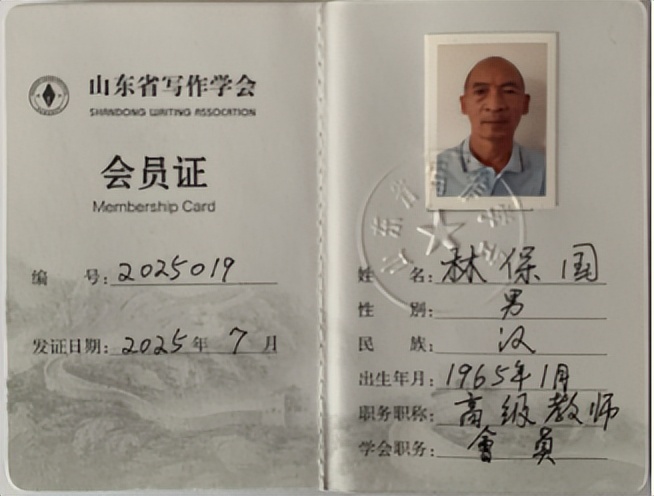 山东省写作学会
SHANDONG WRITING ASSOCATION
会员证
Membership Card
编 号: 2025019
发证日期: 2025年7月
姓 名: 林保国
性 别: 男
民 族: 汉
出生年月: 1965年1月
职务职称: 高级教师
学会职务: 會員